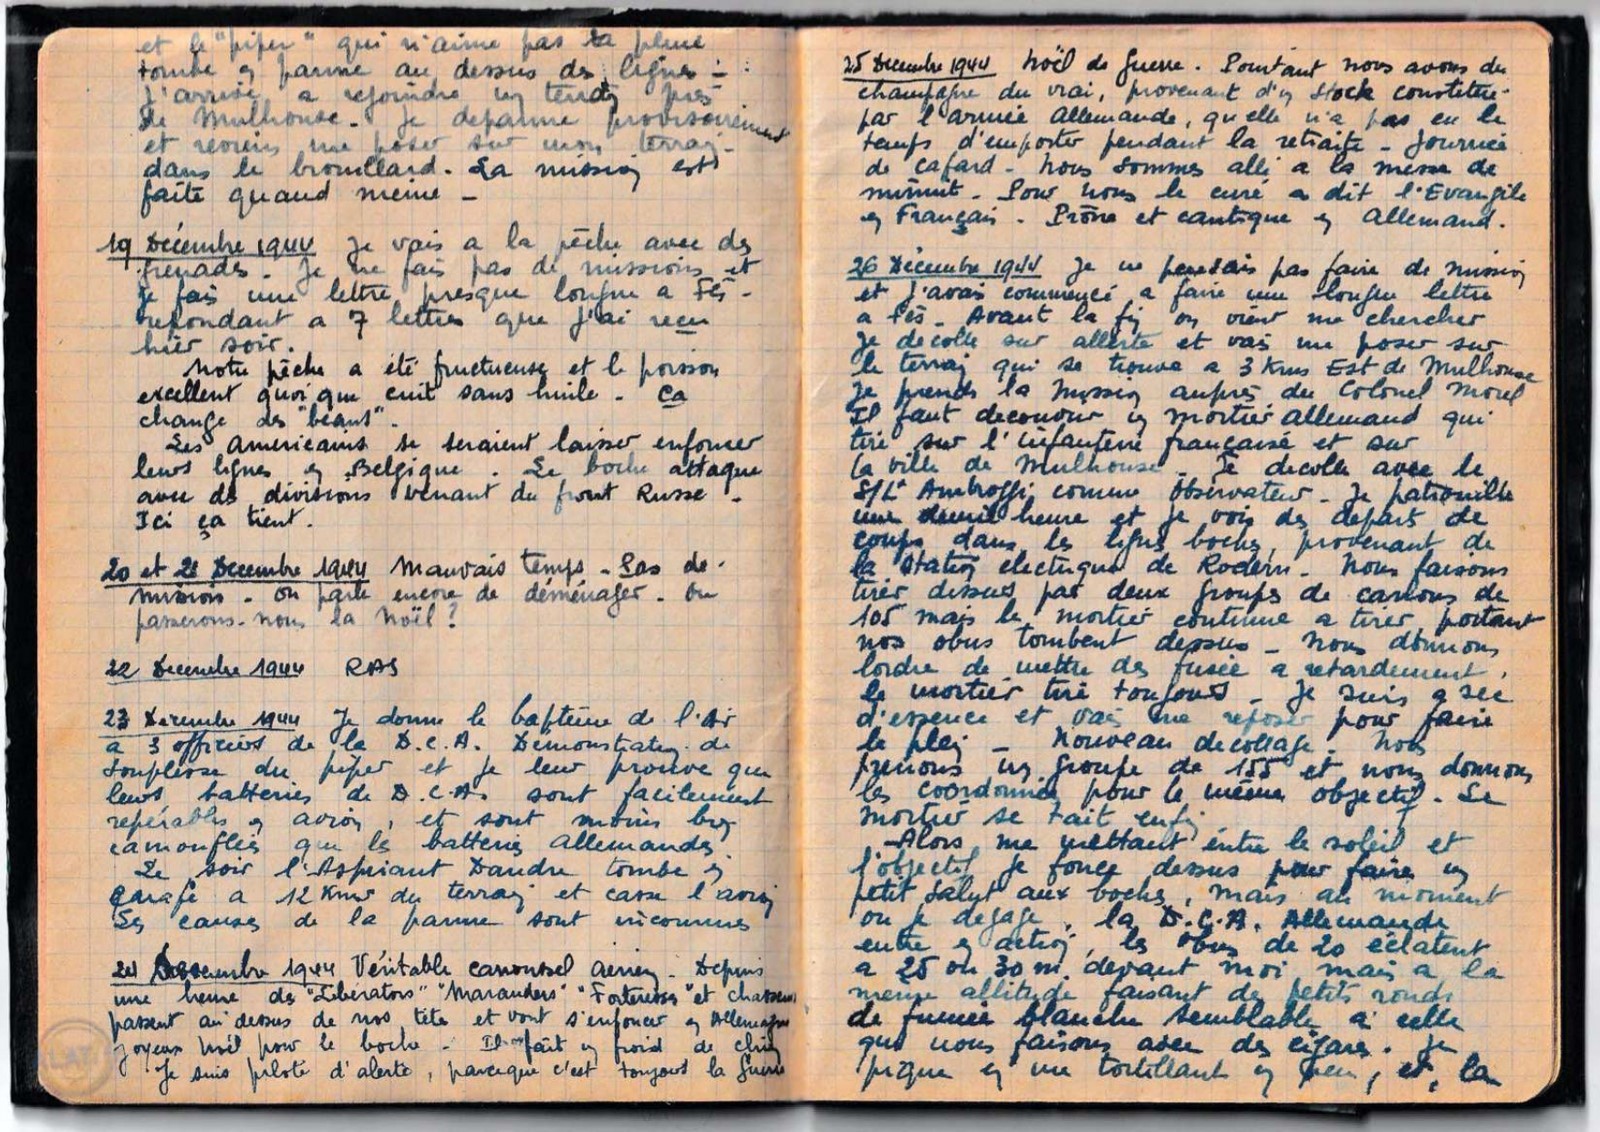 et le "piper" qui n'aime pas la pluie
tombe en panne au dessus des lignes -
J'arrive a rejoindre un terrain près
de Mulhouse. Je depanne provisoirement
et reviens me poser sur mon terrain
dans le brouillard. La mission est
faite quand meme -
19 Décembre 1944 Je vais a la pêche avec des
grenades. Je ne fais pas de missions et
je fais une lettre presque longue a Fès -
repondant a 7 lettres que j'ai reçu
hier soir.
Notre pêche a été fructueuse et le poisson
excellent quoi que cuit sans huile - Ca
change des "beans".
Les americains se seraient laisser enfoncer
leurs lignes en Belgique. Le boche attaque
avec des divisions venant du front Russe -
Ici ça tient.
20 et 21 Decembre 1944 Mauvais temps - Pas de
mission - On parle encore de déménager - Ou
passerons-nous la Noël ?
22 Decembre 1944 RAS
23 Decembre 1944 Je donne le baptême de l'Air
a 3 officiers de la D.C.A. Démonstration de
souplesse du piper et je leur prouve que
leurs batteries de D.C.A. sont facilement
repérables en avion, et sont moins bien
camouflées que les batteries allemandes.
Le soir l'Aspirant Dandre tombe en
carafe a 12 Kms du terrain et casse l'avion
Les causes de la panne sont inconnues
24 Decembre 1944 Véritable carrousel aérien - Depuis
une heure des "Liberators" "Marauders" "Forteresses" et chasseurs
passent au dessus de nos tetes et vont s'enfoncer en Allemagne
joyeux Noël pour le boche - Il fait un froid de chien
Je suis pilote d'alerte, parceque c'est toujours la guerre
25 Decembre 1944 Noël de Guerre. Pourtant nous avons du
champagne du vrai, provenant d'un stock constitué
par l'armée Allemande, qu'elle n'a pas eu le
temps d'emporter pendant la retraite - Journée
de cafard - Nous sommes allé a la messe de
minuit - Pour nous le curé a dit l'Evangile
en Français - Prône et cantique en Allemand.
26 Decembre 1944 Je ne pensais pas faire de mission
et j'avais commencé a faire une longue lettre
a Fès - Avant la fin on vient me chercher
Je decolle sur alerte et vais me poser sur
le terrain qui se trouve a 3 Kms EST de Mulhouse
Je prends la Mission auprès du Colonel Morel
Il faut decouvrir un mortier allemand qui
tire sur l'infanterie française et sur
la ville de Mulhouse - Je decolle avec le
S/Lt Ambroggi comme observateur - Je patrouille
une demie heure et je vois des departs de
coups dans les lignes boches, provenant de
la station electrique de Rodern - Nous faisons
tirer dessus par deux groupes de canons de
105 mais le mortier continue a tirer, portant
nos obus tombent dessus - Nous donnons
lordre de mettre des fusée a retardement.
Le mortier tire toujours - Je suis a sec
d'essence et vais me reposer pour faire
le plein - Nouveau decollage - Nous
prenons un groupe de 155 et nous donnons
les coordonnées pour le même objectif - Le
mortier se tait enfin
Alors me mettant entre le soleil et
l'objectif je fonce dessus pour faire un
petit salut aux boches, mais au moment
ou je degage, la D.C.A. Allemande
entre en action, les obus de 20 éclatent
a 25 ou 30 m. devant moi mais a la
meme altitude faisant de petits ronds
de fumée blanche semblable à celle
que nous faisons avec des cigares. Je
pique en me tortillant un peu, et, la